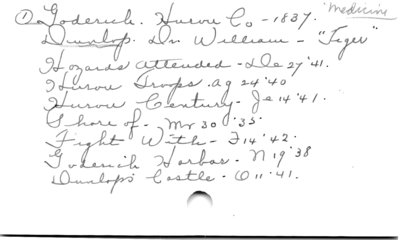 medicine
① Goderich. Huron Co - 1837.
Dunlop. Dr. William - "Tiger"
Hozards attended - De 27 '41.
Huron Troops. Ag 24 '40
Huron Century - Je 14 '41.
Shore of - Mr 30 '35
Fight With - F 14 '42.
Goderich Harbor - N 19 '38
Dunlop's Castle - O 11 '41.